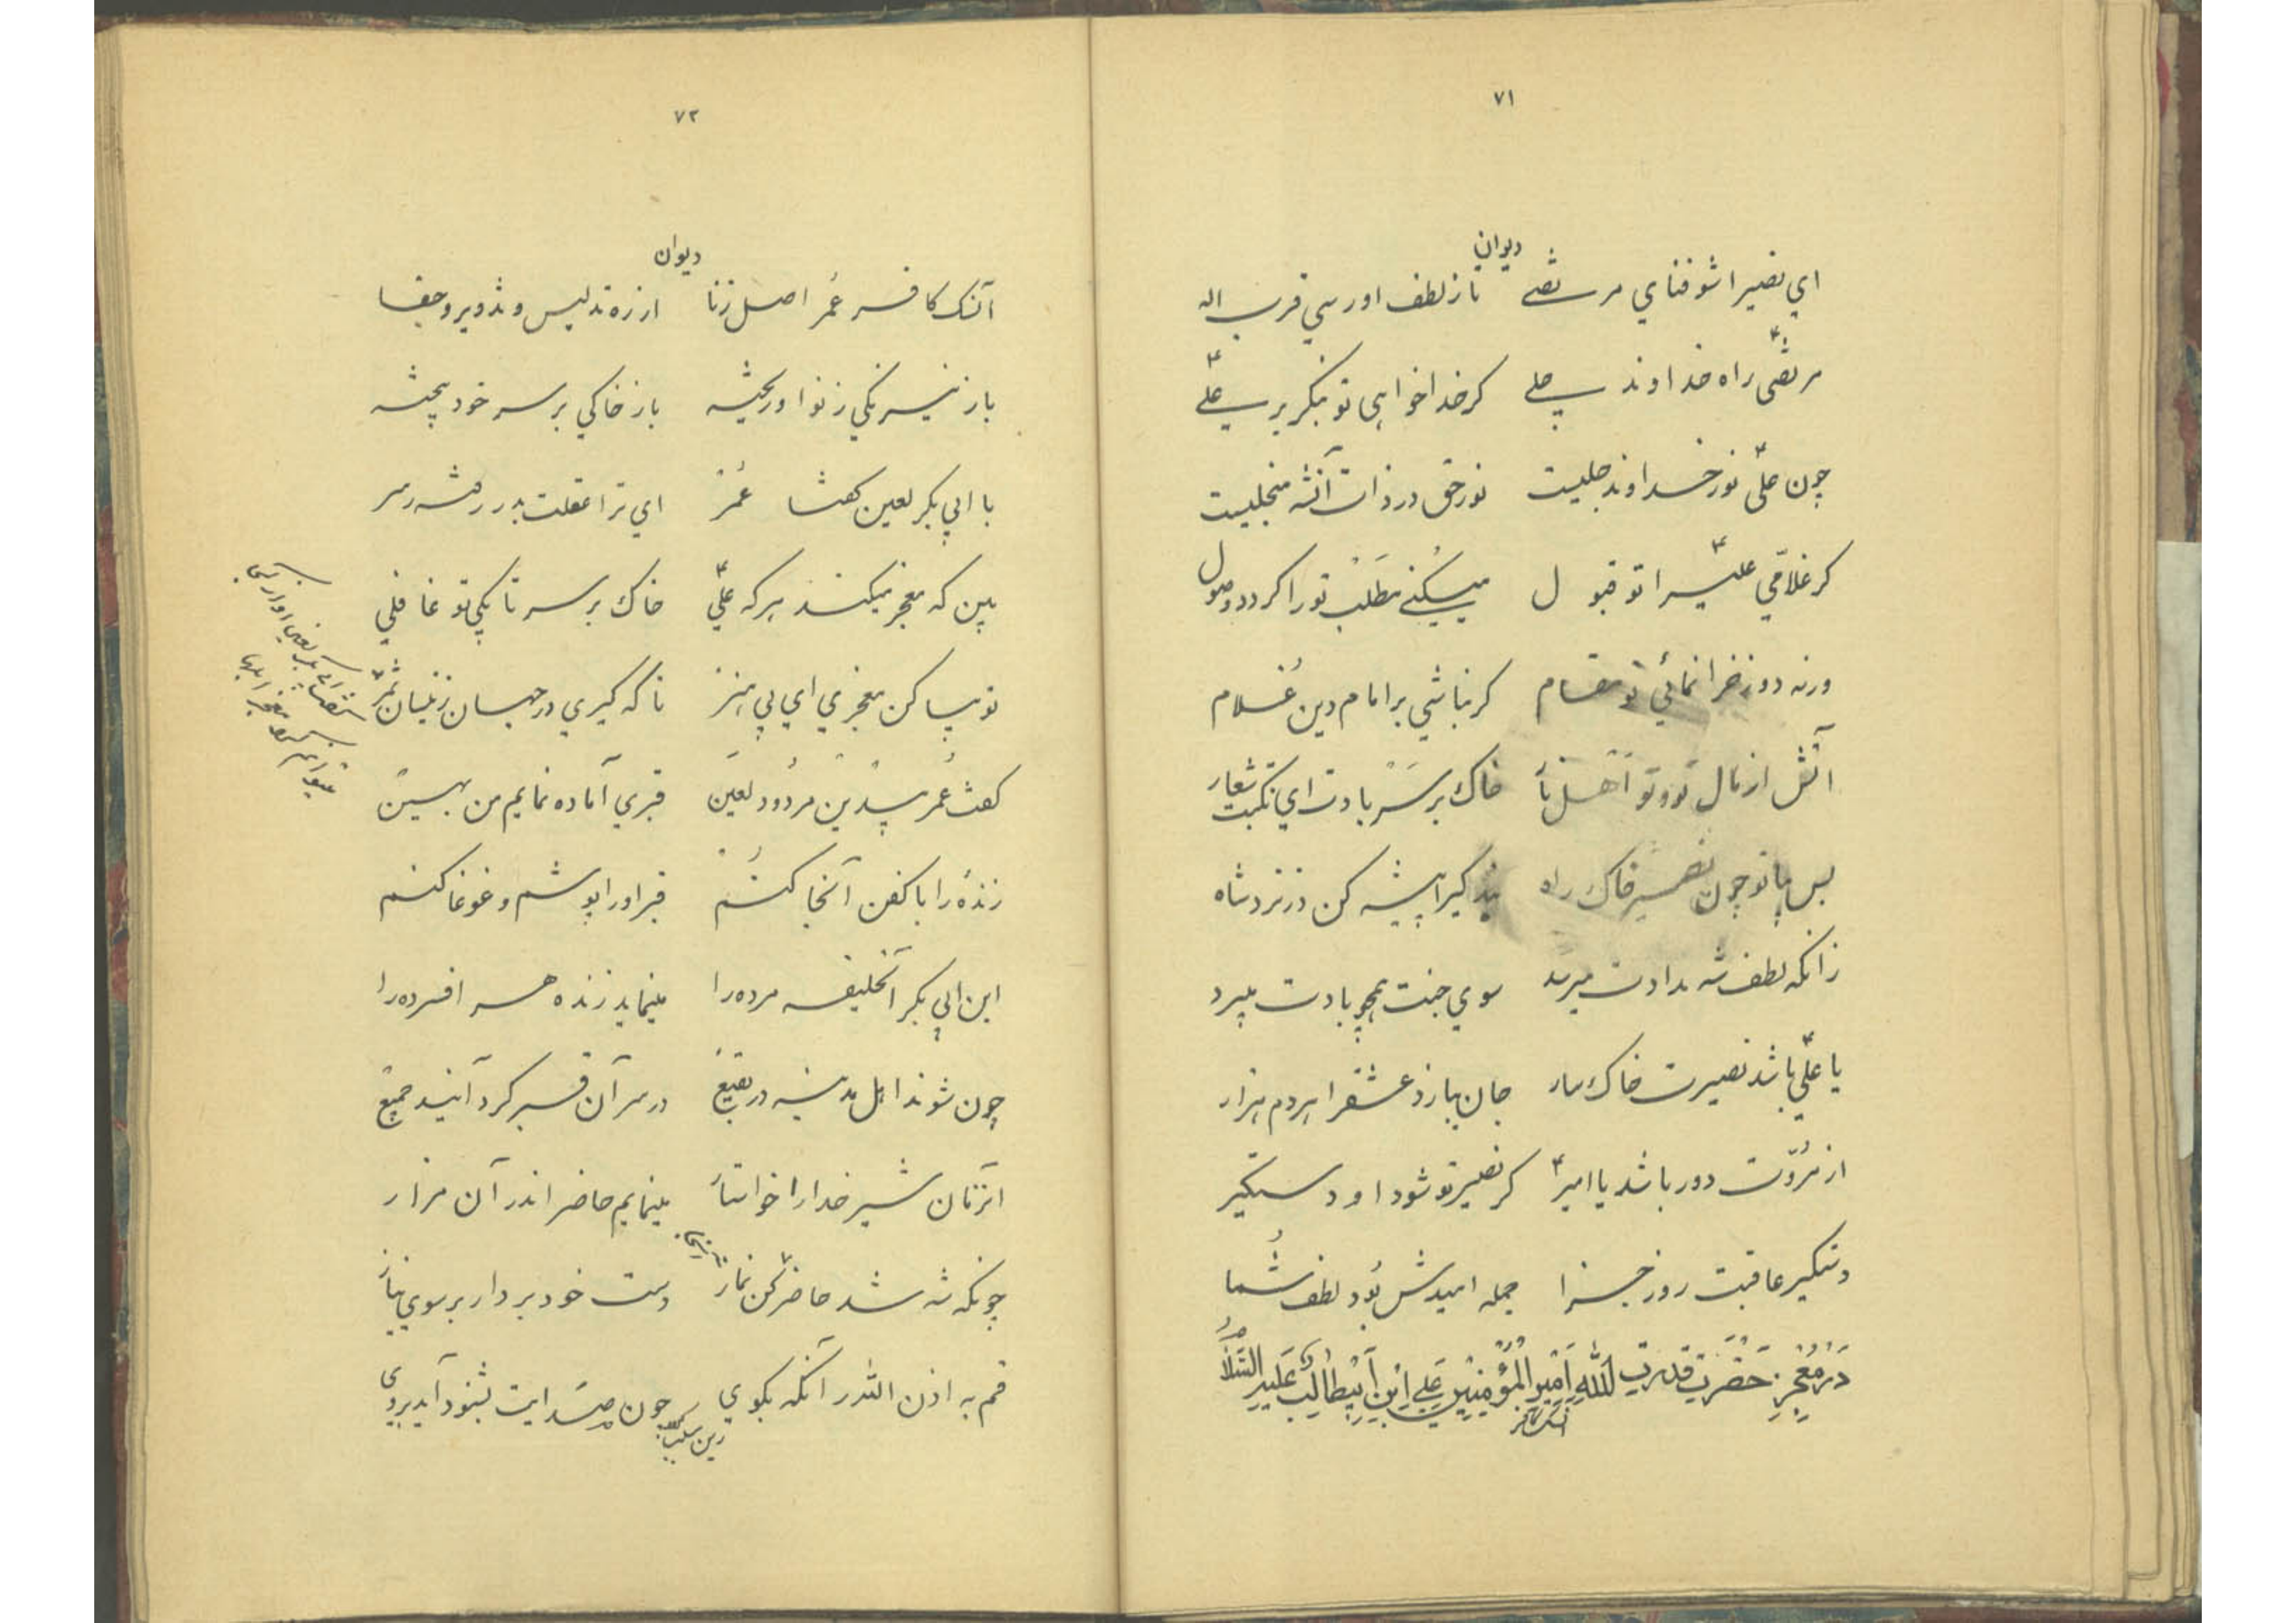 ۷۱
دیوان
اي نصیرا شو فناي مرتضے تا ز لطف او رسي قرب اله
مرتضی راه خداوند جلے کر خدا خواهی تو بنکر بر علے
چون علی نور خداوند جلیست نور حق در ذات آنشه منجلیست
کر غلامي علیرا تو قبول میکنے مطلب تو را کردد وصول
ورنه دوزخ را نمائي تو مقام کر نباشي بر امام دین غلام
آتش از مال تو و تو اهل نار خاک بر سر بادت اي نکبت شعار
پس بیا تو چون نصیر خاک راه بند کیرا پیشه کن در نزد شاه
زانکه لطف شه بدادت میرسد سوي جنت همچو بادت میبرد
یا علی باشد نصیرت خاکسار جان ببازد عشقرا هر دم هزار
از مروت دور باشد یا امیر کر نصیر تو شود او دستکیر
دستکیر عاقبت روز جزا جمله امیدش بود لطف شما
در معجز حضرت قدرت الله امیر المؤمنین علی ابن ابیطالب علیه السلام
آنسک کافر
۷۲
دیوان
آنسک کافر عمر اصل زنا از ره تدلیس و تذویر و جفا
باز نیرنکي ز نو او ریخته باز خاکي بر سر خود بیخته
با ابي بکر لعین کفتا عمر اي ترا عقلت بدر رفته ز سر
بین که معجز میکند هر که علي خاک بر سر تا بکي تو غافلي
تو بیا کن معجزي اي بي هنر تا که کیري در جهان زینسان ثمر
کفت عمر بیدین مردود لعین قبري آماده نمایم من بهین
زنده را با کفن آنجا کنم قبر او را پوشم و غوغا کنم
این ابي بکر آنخلیفه مرده را مینماید زنده هر افسرده را
چون شوند اهل مدینه در بقیع در سر آن قبر کرد آیند جمیع
آنزمان شیر خدا را خواستار مینمایم حاضر اندر آن مزار
چونکه شه شد حاضر کن نماز دست خود بردار بر سوي نیاز
قم به اذن الله در آنکه بکوي چون صدایت بشنود آید بروی